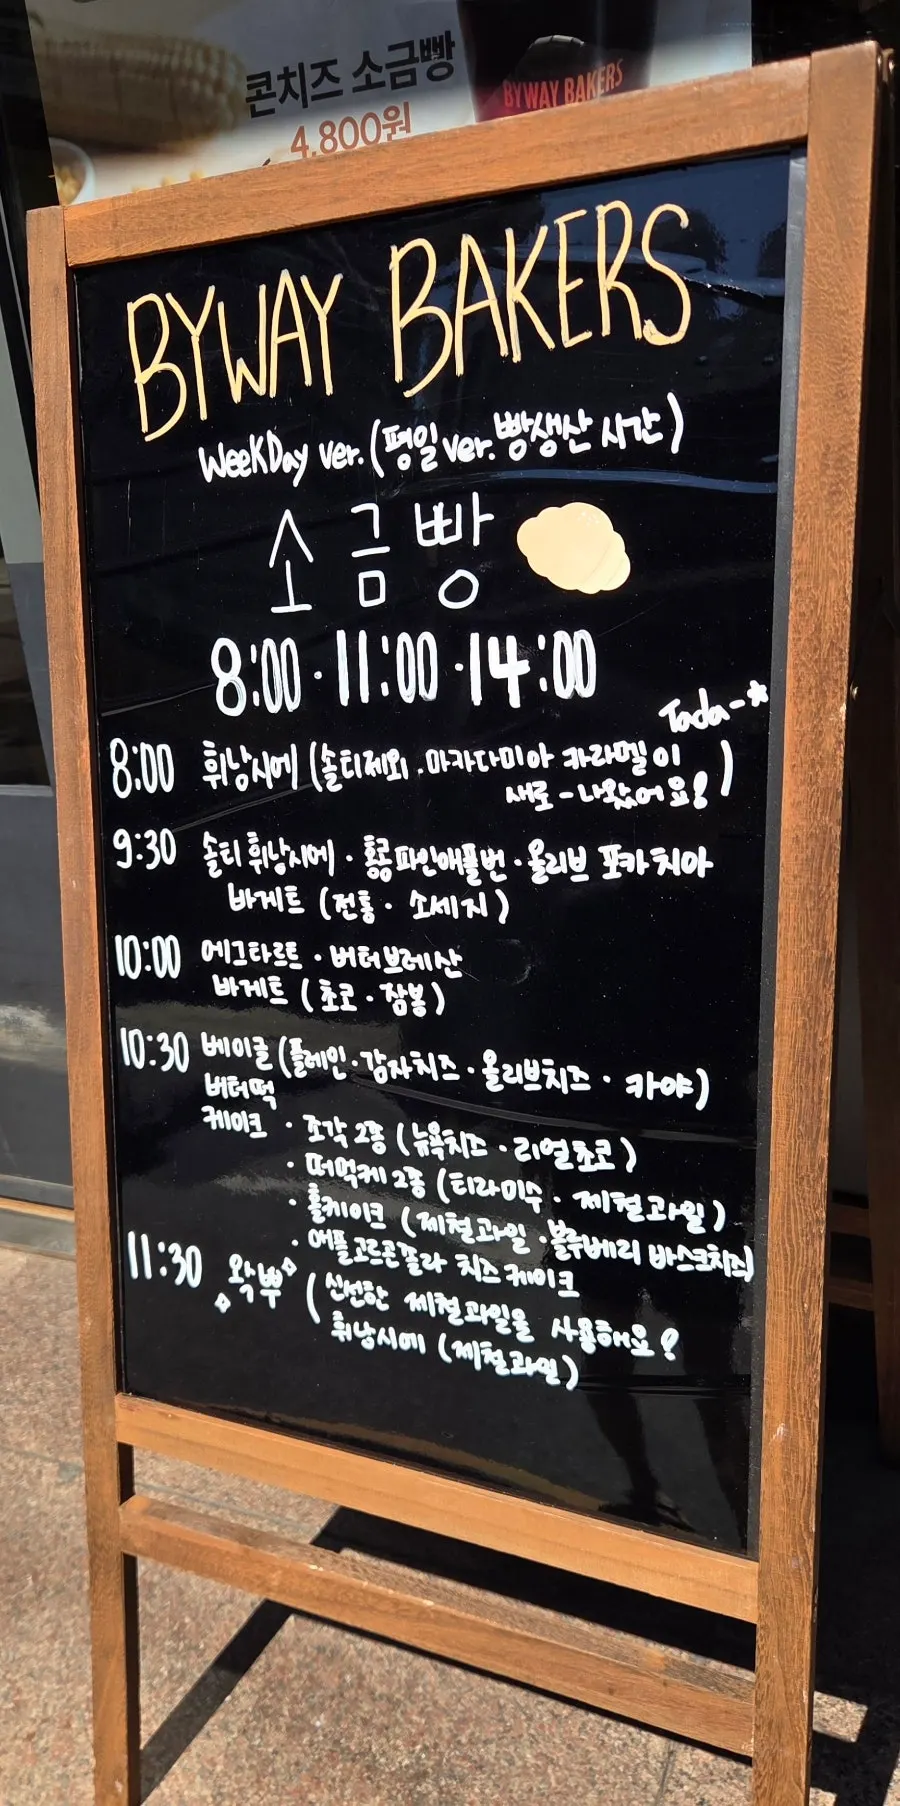 콘치즈 소금빵
4,800원
BYWAY BAKERS
BYWAY BAKERS
WeeKDay ver. (평일 ver. 빵생산 시간)
소금빵
8:00 · 11:00 · 14:00
Tada-*
8:00 휘낭시에 (솔티제외 . 마카다미아 카라멜이
새로 - 나왔어요!)
9:30 솔티 휘낭시에 · 홍콩파인애플번 · 올리브 포카치아
바게트 (전통 · 소세지)
10:00 에그타르트 · 버터브레산
바게트 (초코 · 잠봉)
10:30 베이글 (플레인 · 감자치즈 · 올리브치즈 · 카야)
버터떡
케이크 · 조각 2종 (뉴욕치즈 · 리얼초코)
· 떠먹케 2종 (티라미수 · 제철과일)
· 홀케이크 (제철과일 · 블루베리 바스크치즈)
· 애플고르곤졸라 치즈케이크
11:30 왁뿌 (신선한 제철과일을 사용해요!
휘낭시에 (제철과일)